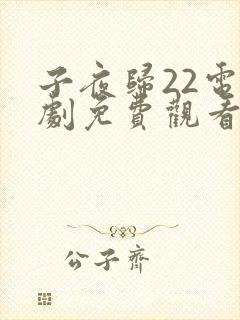 子夜歸22電
劇免費觀看
公子齊